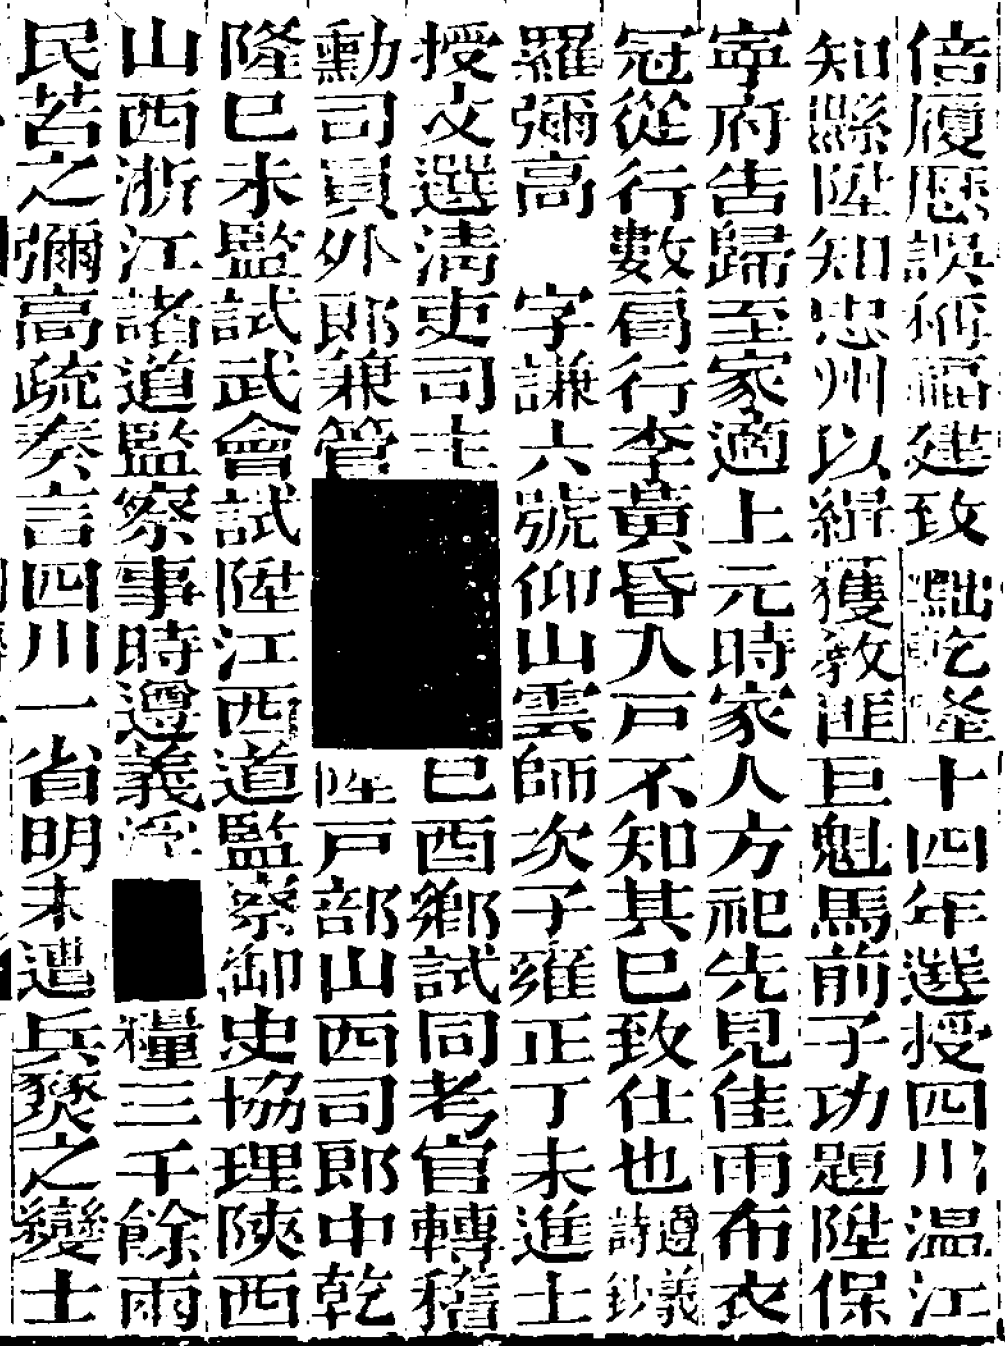 倍履歷誤稱福建致黜乾隆十四年選授四川温江
知縣陞知忠州以緝獲教匪巨魁馬前子功題陞保
寧府告歸至家適上元時家人方祀先見佳雨布衣
冠從行數肩行李黃昏入戶不知其已致仕也遵義詩鈔
羅彌高 字謙六號仰山雲師次子雍正丁未進士
授文選清吏司主巳酉鄉試同考官轉稽
勳司員外郎兼管陞戶部山西司郎中乾
隆巳未監試武會試陞江西道監察御史協理陝西
山西浙江諸道監察事時遵義糧三千餘兩
民苦之彌高疏奏言四川一省明末遭兵燹之變士